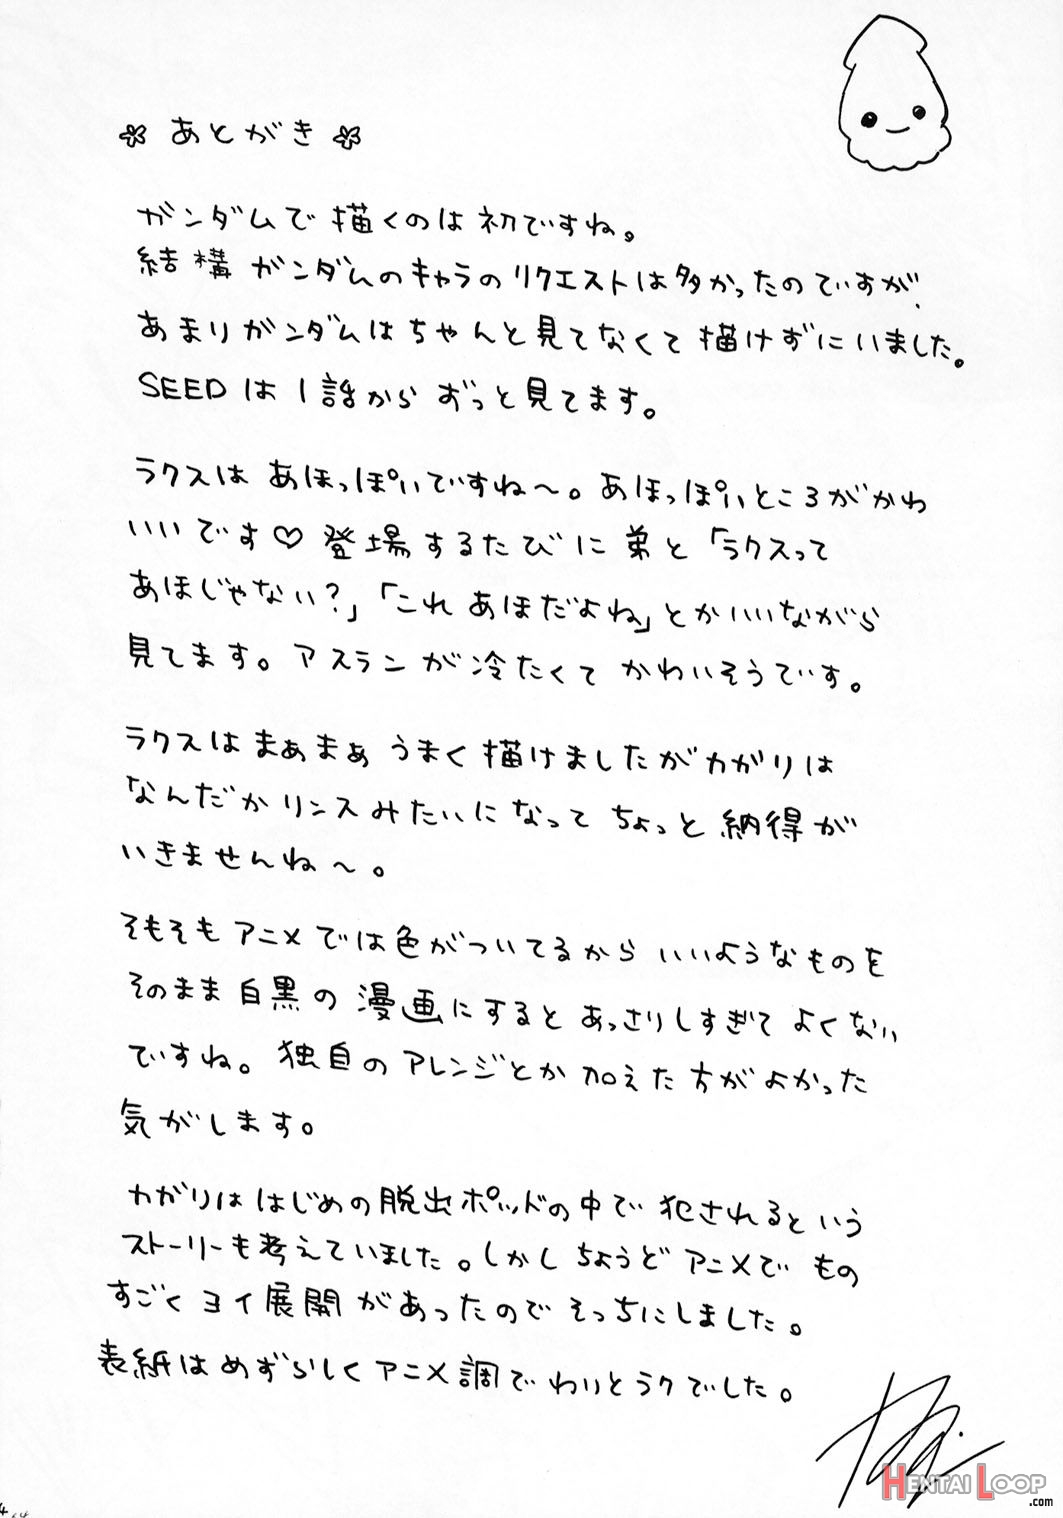 あとがき
ガンダムで描くのは初ですね。
結構ガンダムのキャラのリクエストは多かったのですが、
あまりガンダムはちゃんと見てなくて描けずにいました。
SEEDは1話からずっと見てます。
ラクスはあほっぽいですね～。あほっぽいところがかわ
いいです♡登場するたびに弟と「ラクスって
あほじゃない?」「これあほだよね」とかいいながら
見てます。アスランが冷たくてかわいそうです。
ラクスはまぁまぁうまく描けましたがカガリは
なんだかリンスみたいになってちょっと納得が
いきませんね～。
そもそもアニメでは色がついてるからいいようなものを
そのまま白黒の漫画にするとあっさりしすぎてよくない
ですね。独自のアレンジとか加えた方がよかった
気がします。
カガリははじめの脱出ポッドの中で犯されるという
ストーリーも考えていました。しかしちょうどアニメでもの
すごくヨイ展開があったのでそっちにしました。
表紙はめずらしくアニメ調でわりとラクでした。
HENTAI LOOP
.com